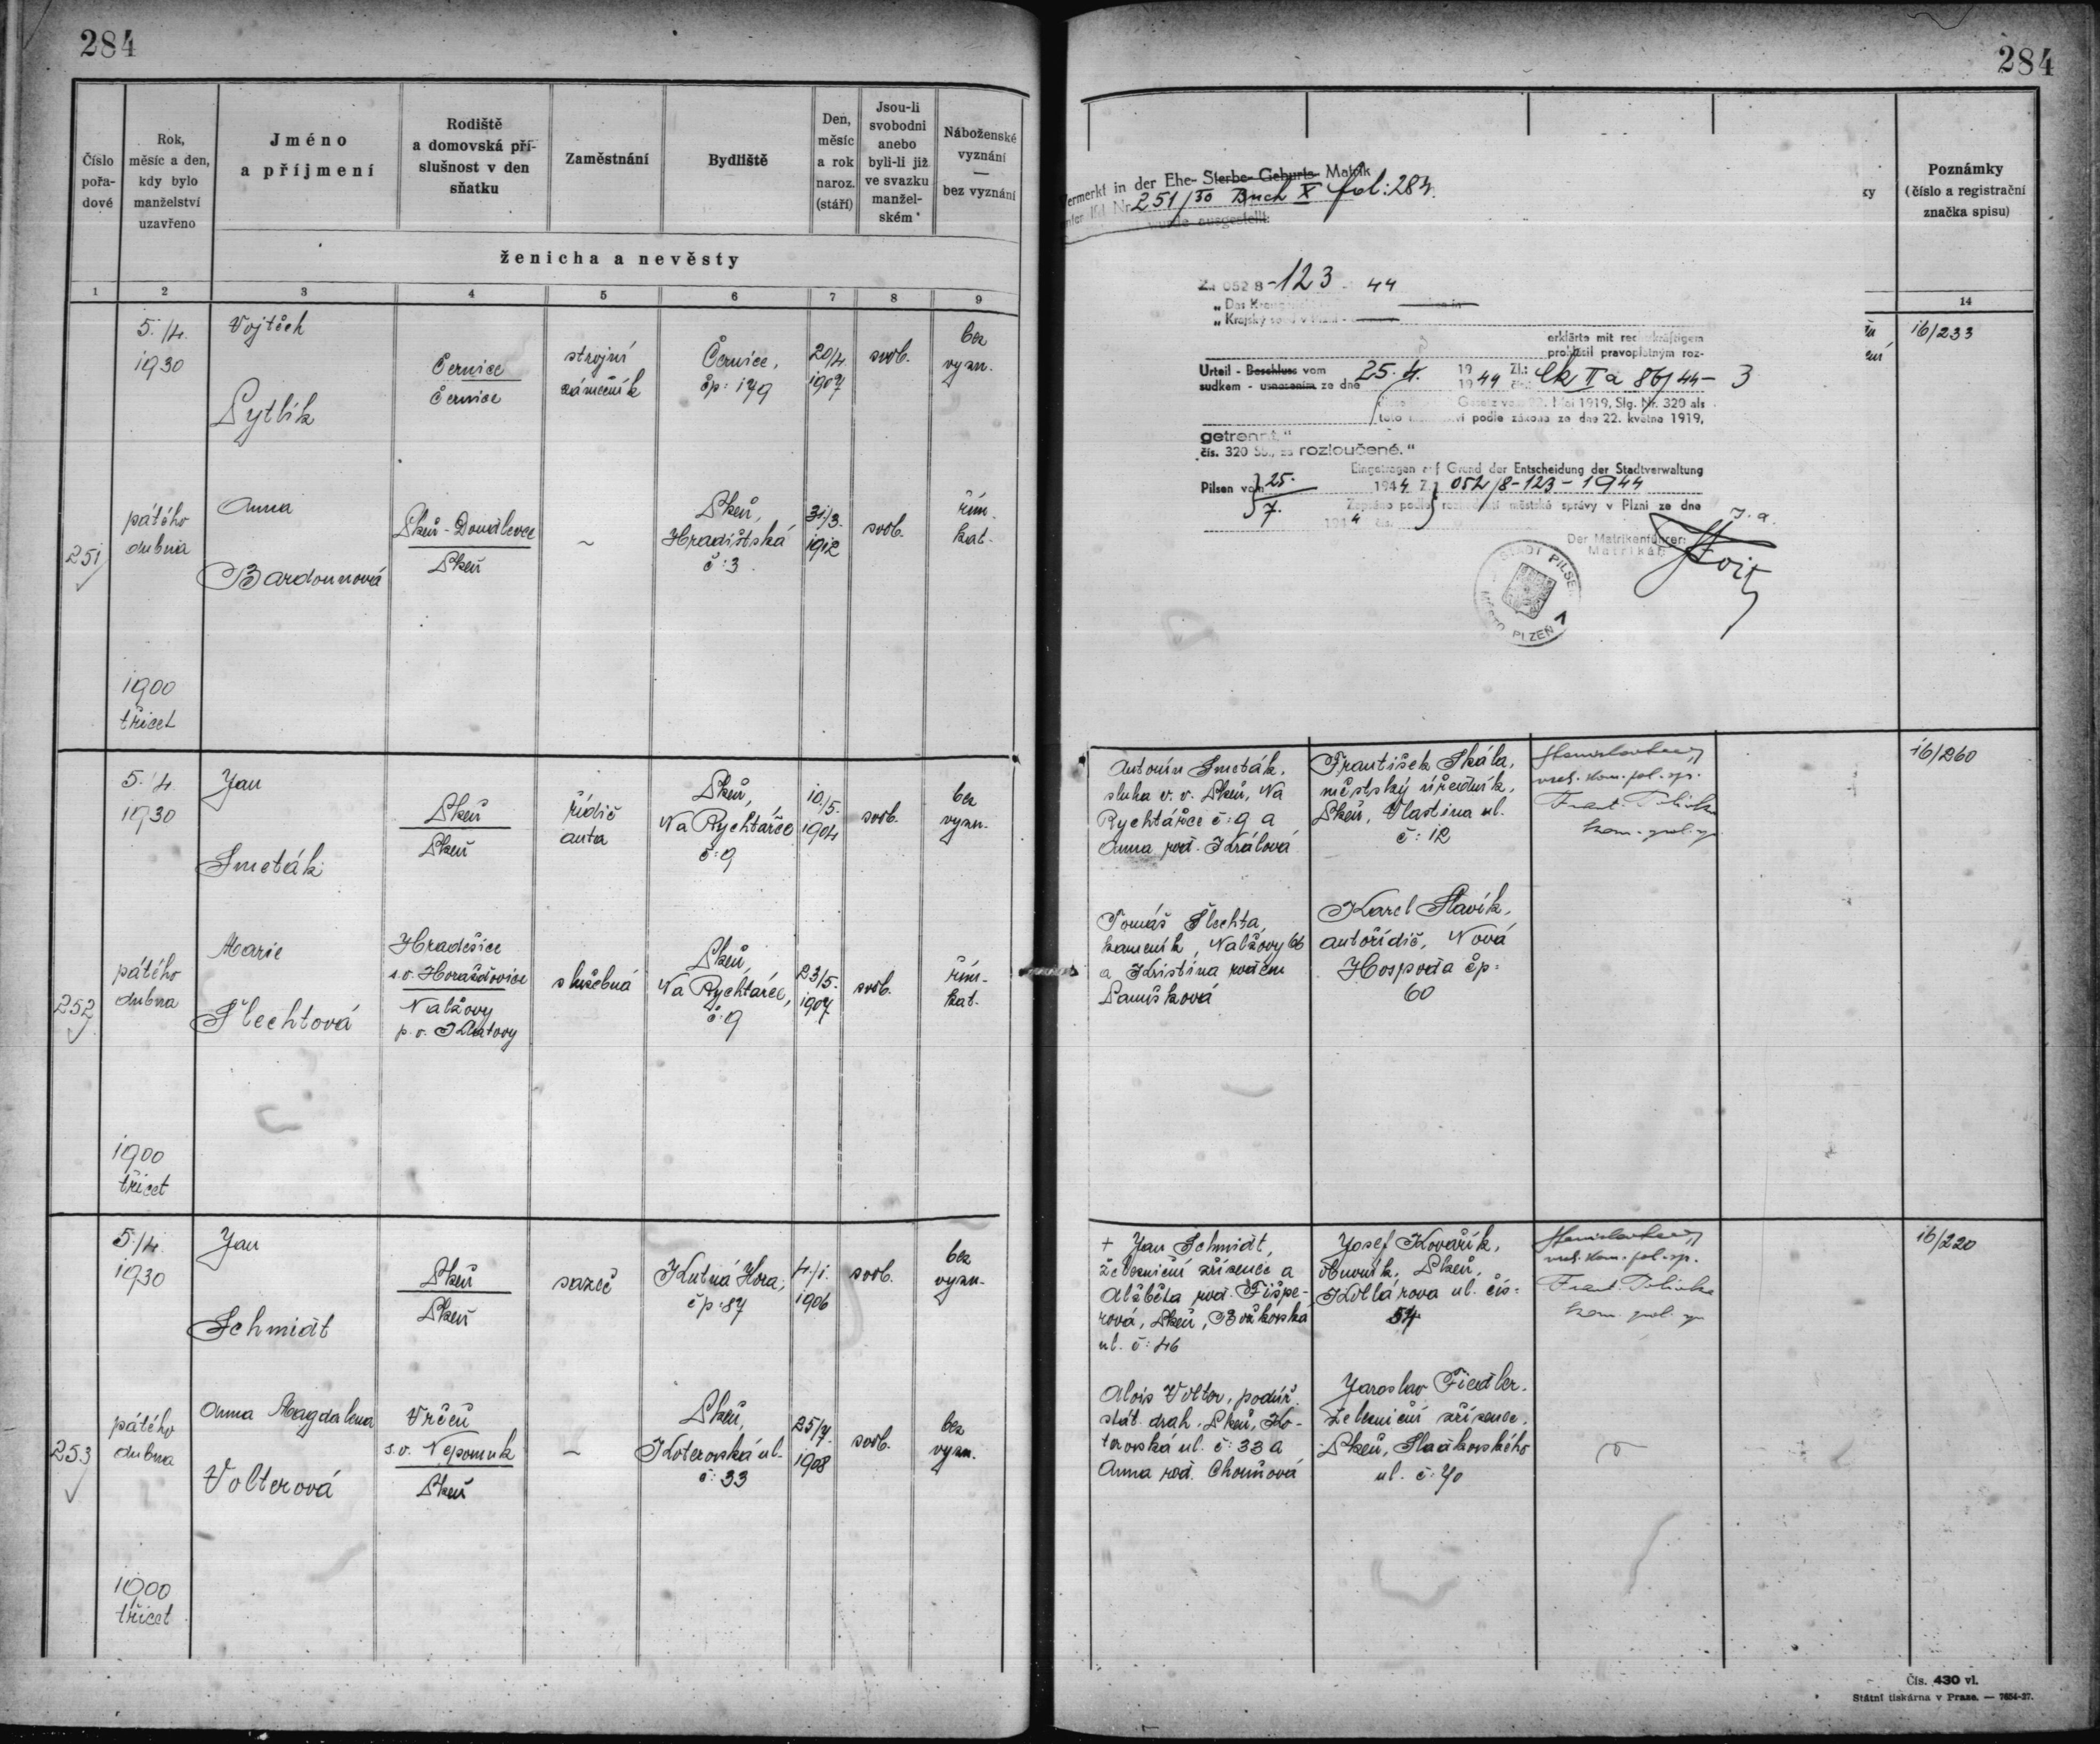 284
284
Číslo
pořa-
dové
Rok,
měsíc a den,
kdy bylo
manželství
uzavřeno
Jméno
a příjmení
Rodiště
a domovská pří-
slušnost v den
sňatku
Zaměstnání
Bydliště
Den,
měsíc
a rok
naroz.
(stáří)
Jsou-li
svobodni
anebo
byli-li již
ve svazku
manžel-
ském
Náboženské
vyznání
—
bez vyznání
ženicha a nevěsty
1 2 3 4 5 6 7 8 9
5./4.
1930
Vojtěch
Pytlík
Černice
Černice
strojní
zámečník
Černice,
čp: 179
20/4.
1907
svob.
bez
vyzn.
251
pátého
dubna
Anna
Bardounová
Plzeň-Doudlevce
Plzeň
~
Plzeň,
Hradištská
č: 3
31/3.
1912
svob.
řím.
kat.
1900
třicet
5./4.
1930
Jan
Smeták
Plzeň
Plzeň
řidič
auta
Plzeň,
Na Rychtářce
č: 9
10./5.
1904
svob.
bez
vyzn.
252
pátého
dubna
Marie
Šlechtová
Hradešice
s.o. Horažďovice
Nalžovy
p.o. Klatovy
služebná
Plzeň,
Na Rychtářce,
č: 9
23/5.
1907
svob.
řím-
kat.
1900
třicet
5./4.
1930
Jan
Schmidt
Plzeň
Plzeň
sazeč
Kutná Hora,
čp: 87
4/1.
1906
svob.
bez
vyzn.
253
pátého
dubna
Anna Magdalena
Volterová
Vrčeň
s.o. Nepomuk
Plzeň
~
Plzeň,
Koterovská ul.
č: 33
25/7.
1908
svob.
bez
vyzn.
1900
třicet
Vermerkt in der Ehe- Sterbe- Geburts- Matrik
unter Nr. 251/30 Buch X fol: 284.
wurde ausgestellt.
Z.: 052 8 -123- 44
„Das
„Krajský soud v Plzni -
erklärte mit rechtskräftigem
prohlásil pravoplatným roz-
Urteil - Beschluss vom
sudkem - usnesením ze dne
25. 4. 1944 Zl.: Ck II a 86/44-3
19 44 čís.
Gesetz vom 22. Mai 1919, Slg. Nr. 320 als
toto podle zákona ze dne 22. května 1919,
getrennt."
čís. 320 Sb., za rozloučené."
Eingetragen auf Grund der Entscheidung der Stadtverwaltung
Pilsen vom 25. 7. 1944 Z. 052/8-123-1944
Zapsáno podle rozhodnutí městské správy v Plzni ze dne
194 4 čís.
J. a.
Der Matrikenführer:
Matrikář:
STADT PILSEN
MĚSTO PLZEŇ
1
Poznámky
(číslo a registrační
značka spisu)
14
16/233
Antonín Smeták,
sluha v. v. Plzeň, Na
Rychtářce č: 9 a
Anna roz. Králová
František Skála,
městský úředník,
Plzeň, Vlastina ul.
č: 12
16/260
Tomáš Šlechta,
kameník, Nalžovy 66
a Kristina rozen
Karel Slavík,
autořidič, Nová
Hospoda čp:
60
+ Jan Schmidt,
železniční zřízenec a
Alžběta roz. Fišpe-
rová, Plzeň, Božkovská
ul. č: 46
Josef Kovařík,
obuvník, Plzeň,
Kollárova ul. čís:
54
16/220
Alois Volter, podúř.
stát. drah. Plzeň, Ko-
terovská ul. č: 33 a
Anna roz.
Jaroslav Fiedler,
železniční zřízenec,
Plzeň, Sladkovského
ul. č: 70
Čís. 430 vl.
Státní tiskárna v Praze. — 7654-27.